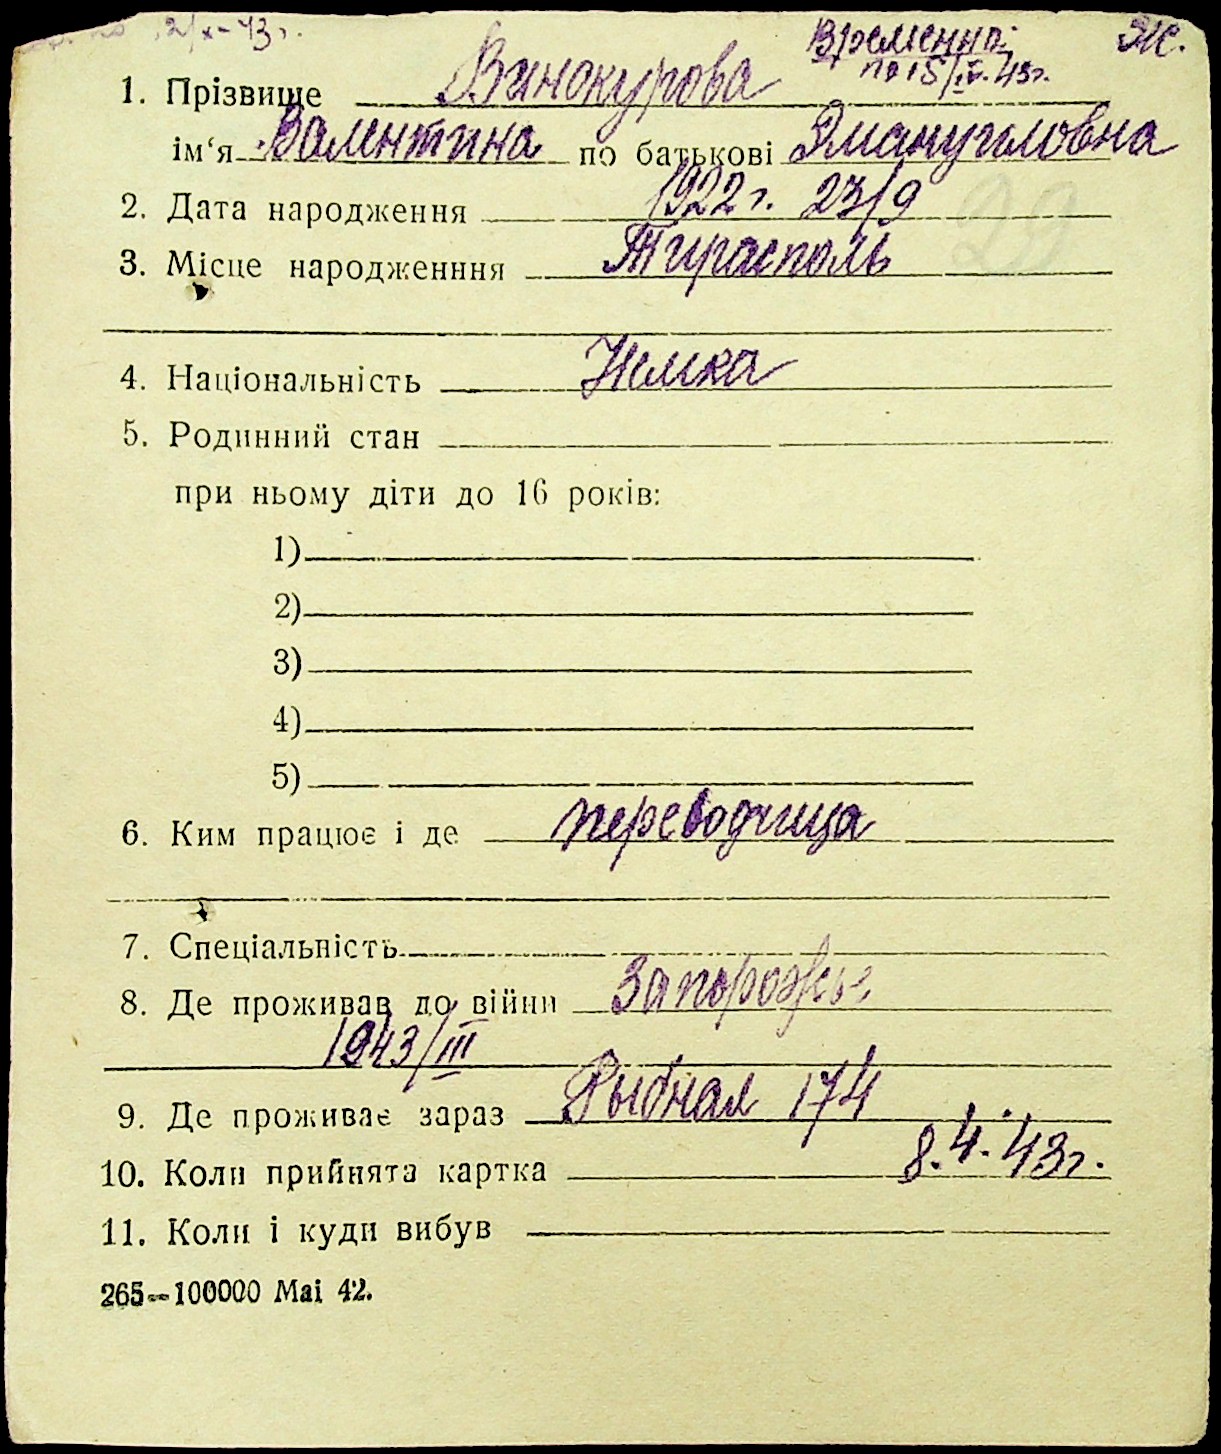 2/X-43г.
Временно Ж.
1. Прізвище Винокурова по 15/IV.43г.
ім‘я Валентина по батькові Эмануиловна
2. Дата народження 1922 г. 23/9 29
3. Місце народженння Тирасполь
4. Національність Немка
5. Родинний стан
при ньому діти до 16 років:
1)
2)
3)
4)
5)
6. Ким працює і де переводчица
7. Спеціальність
8. Де проживав до війни Запорожье
1943/III
9. Де проживає зараз Рыбная 174
10. Коли прийнята картка 8.4.43г.
11. Коли і куди вибув
265—100000 Mai 42.